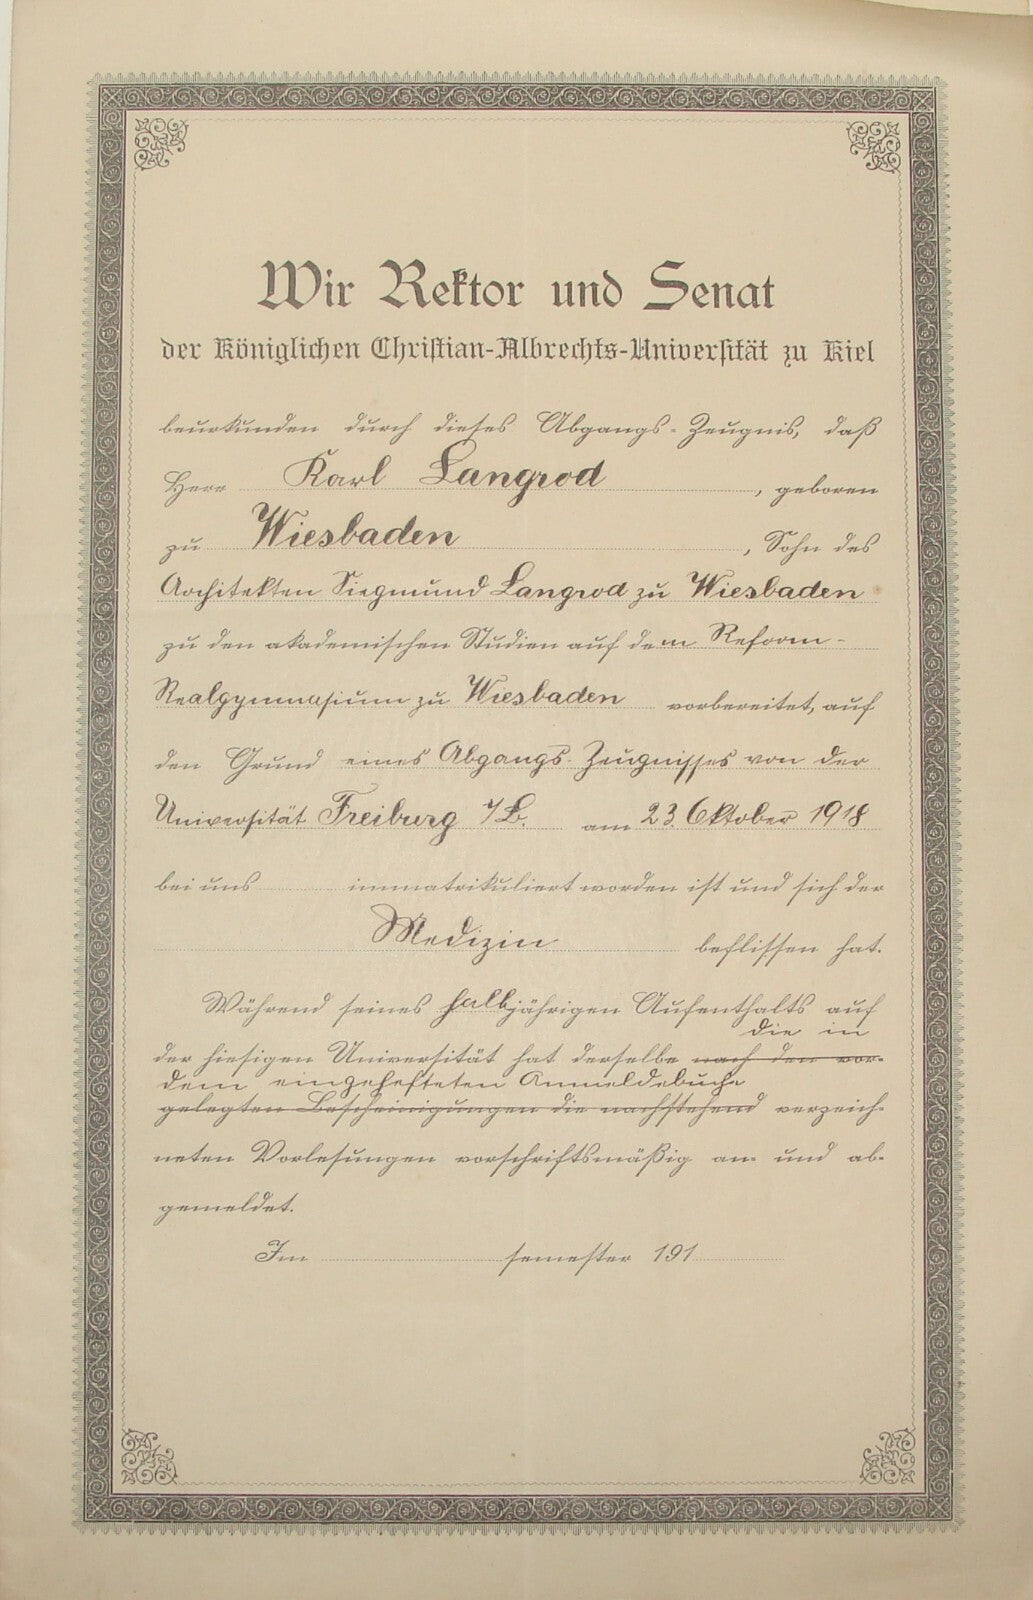 Wir Rektor und Senat
der Königlichen Christian-Albrechts-Universität zu Kiel
beurkunden durch dieses Abgangs-Zeugnis, daß
Herr Karl Langrod, geboren
zu Wiesbaden, Sohn des
Architekten Siegmund Langrod zu Wiesbaden
zu den akademischen Studien auf dem Reform-
Realgymnasium zu Wiesbaden vorbereitet, auf
den Grund eines Abgangs-Zeugnisses von der
Universität Freiburg i/B. am 23. Oktober 1918
bei uns immatrikuliert worden ist und sich der
Medizin beflissen hat.
Während seines halbjährigen Aufenthalts auf
die in
der hiesigen Universität hat derselbe nach den vor-
dem eingehefteten Anmeldebuche
gelegten Bescheinigungen die nachstehend verzeich-
neten Vorlesungen vorschriftsmäßig an- und ab-
gemeldet.
Im semester 191